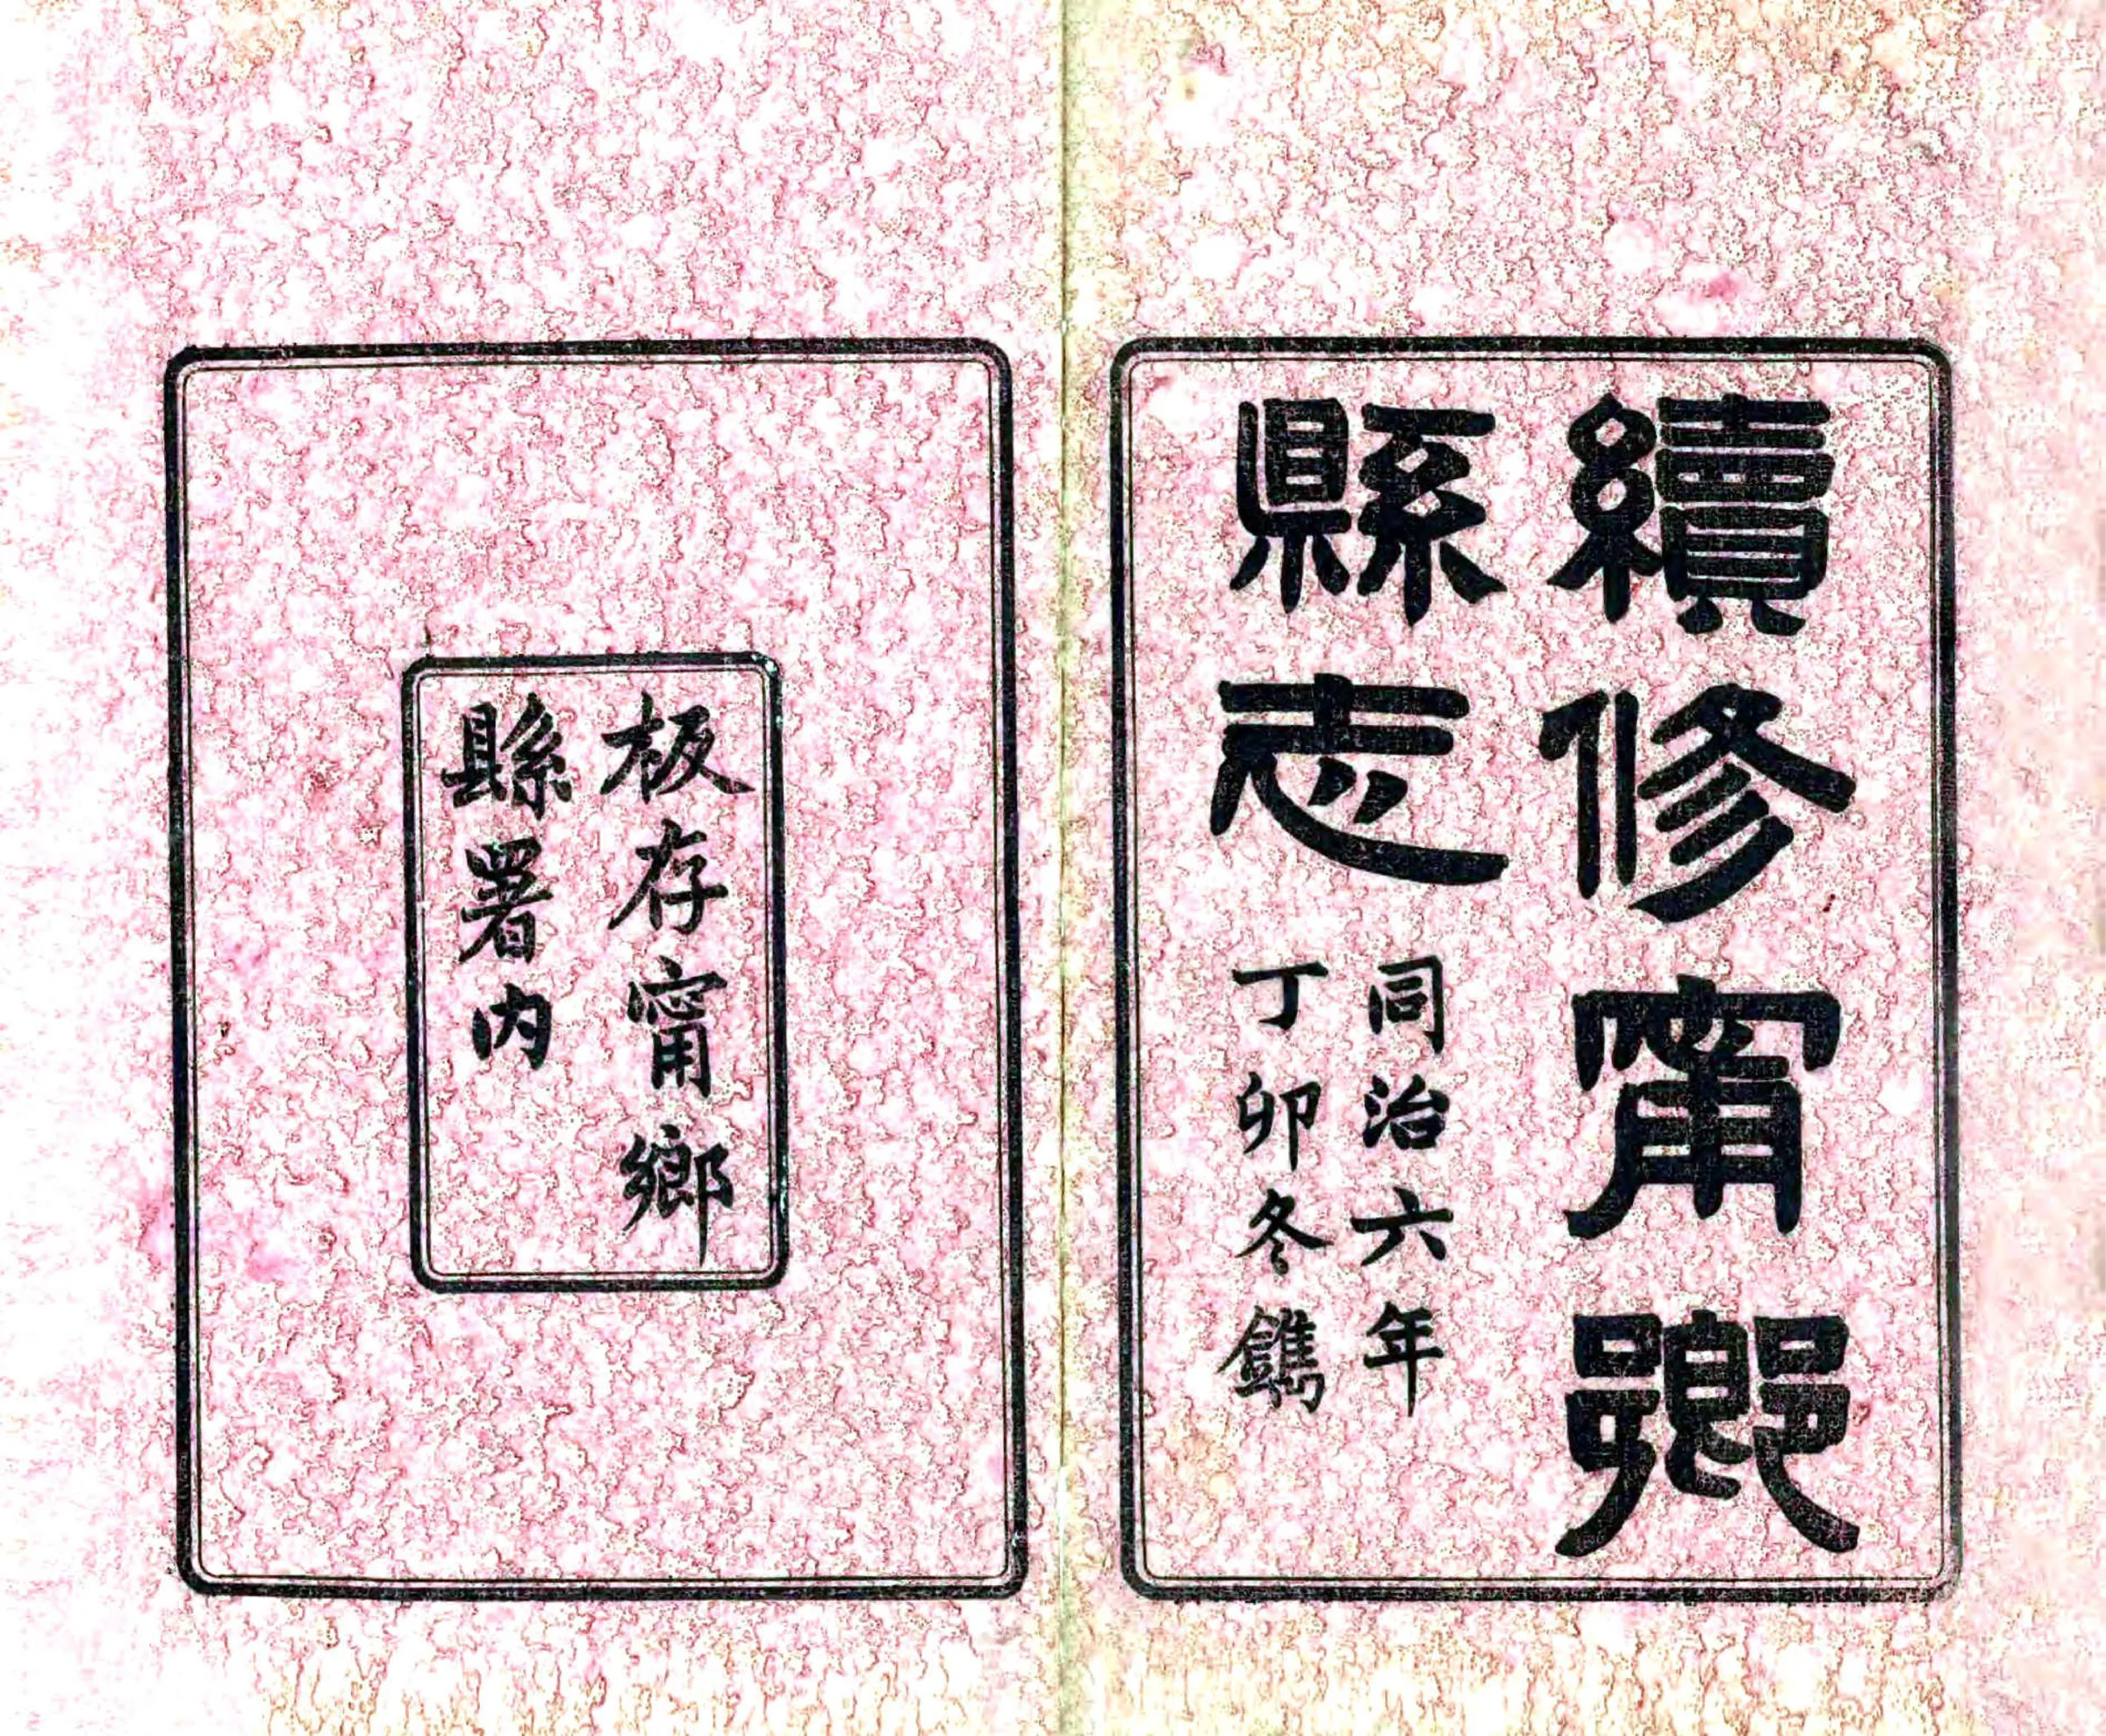 續修甯鄉
縣志
同治六年
丁卯冬鐫
板存甯鄉
縣署内